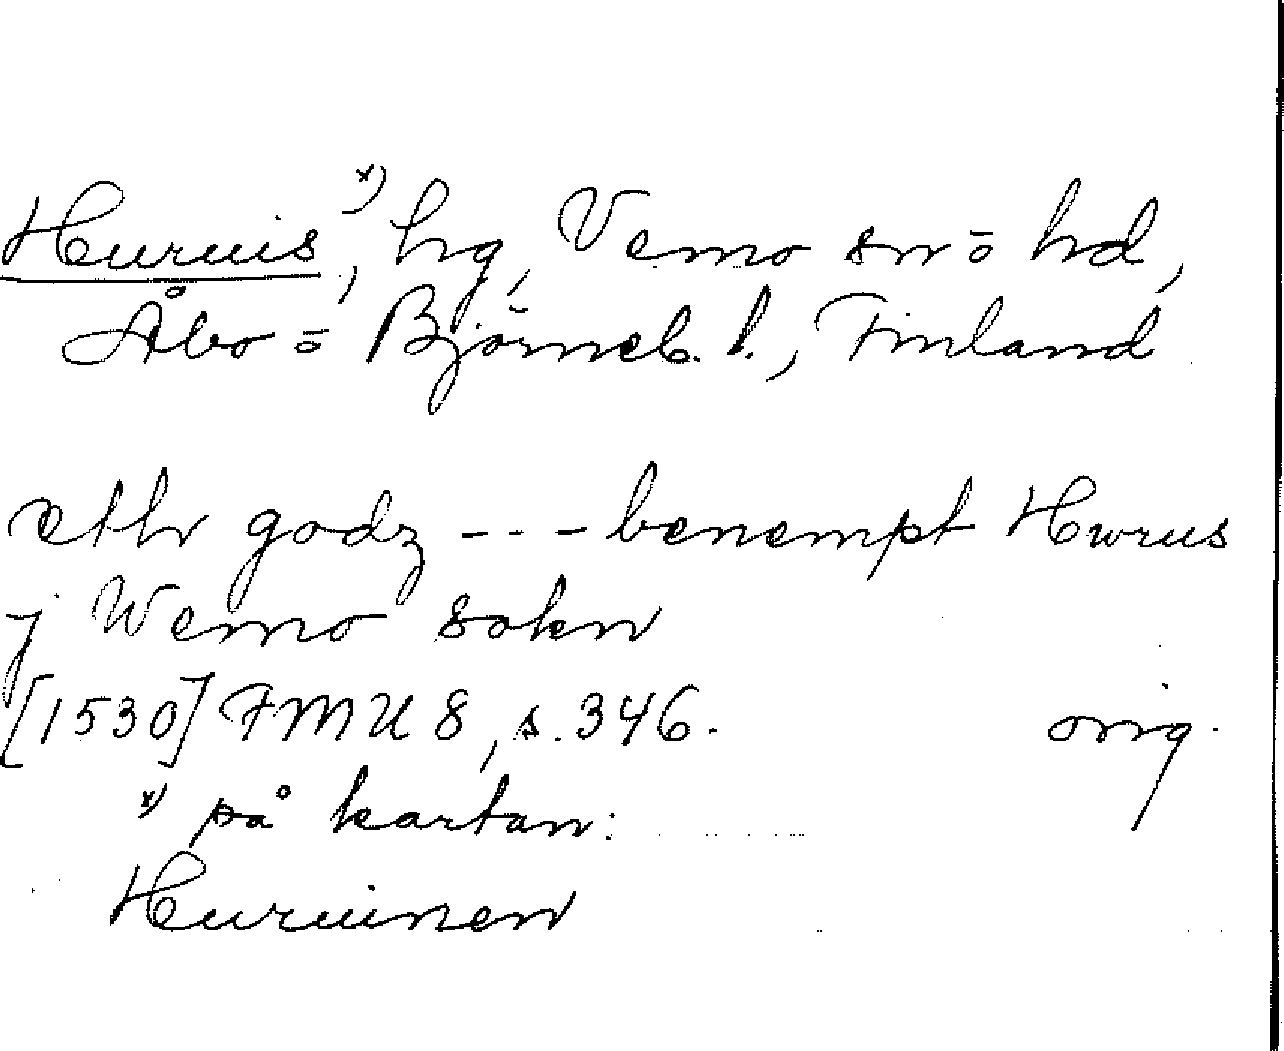 Huruis x), hg, Vemo sn ō hd,
Åbo ō Björneb. l., Finland
ethr godz --- benempt Hwrus
j Wemo sokn
[1530] FMU 8, s. 346. orig.
x) på kartan:
Huruinen